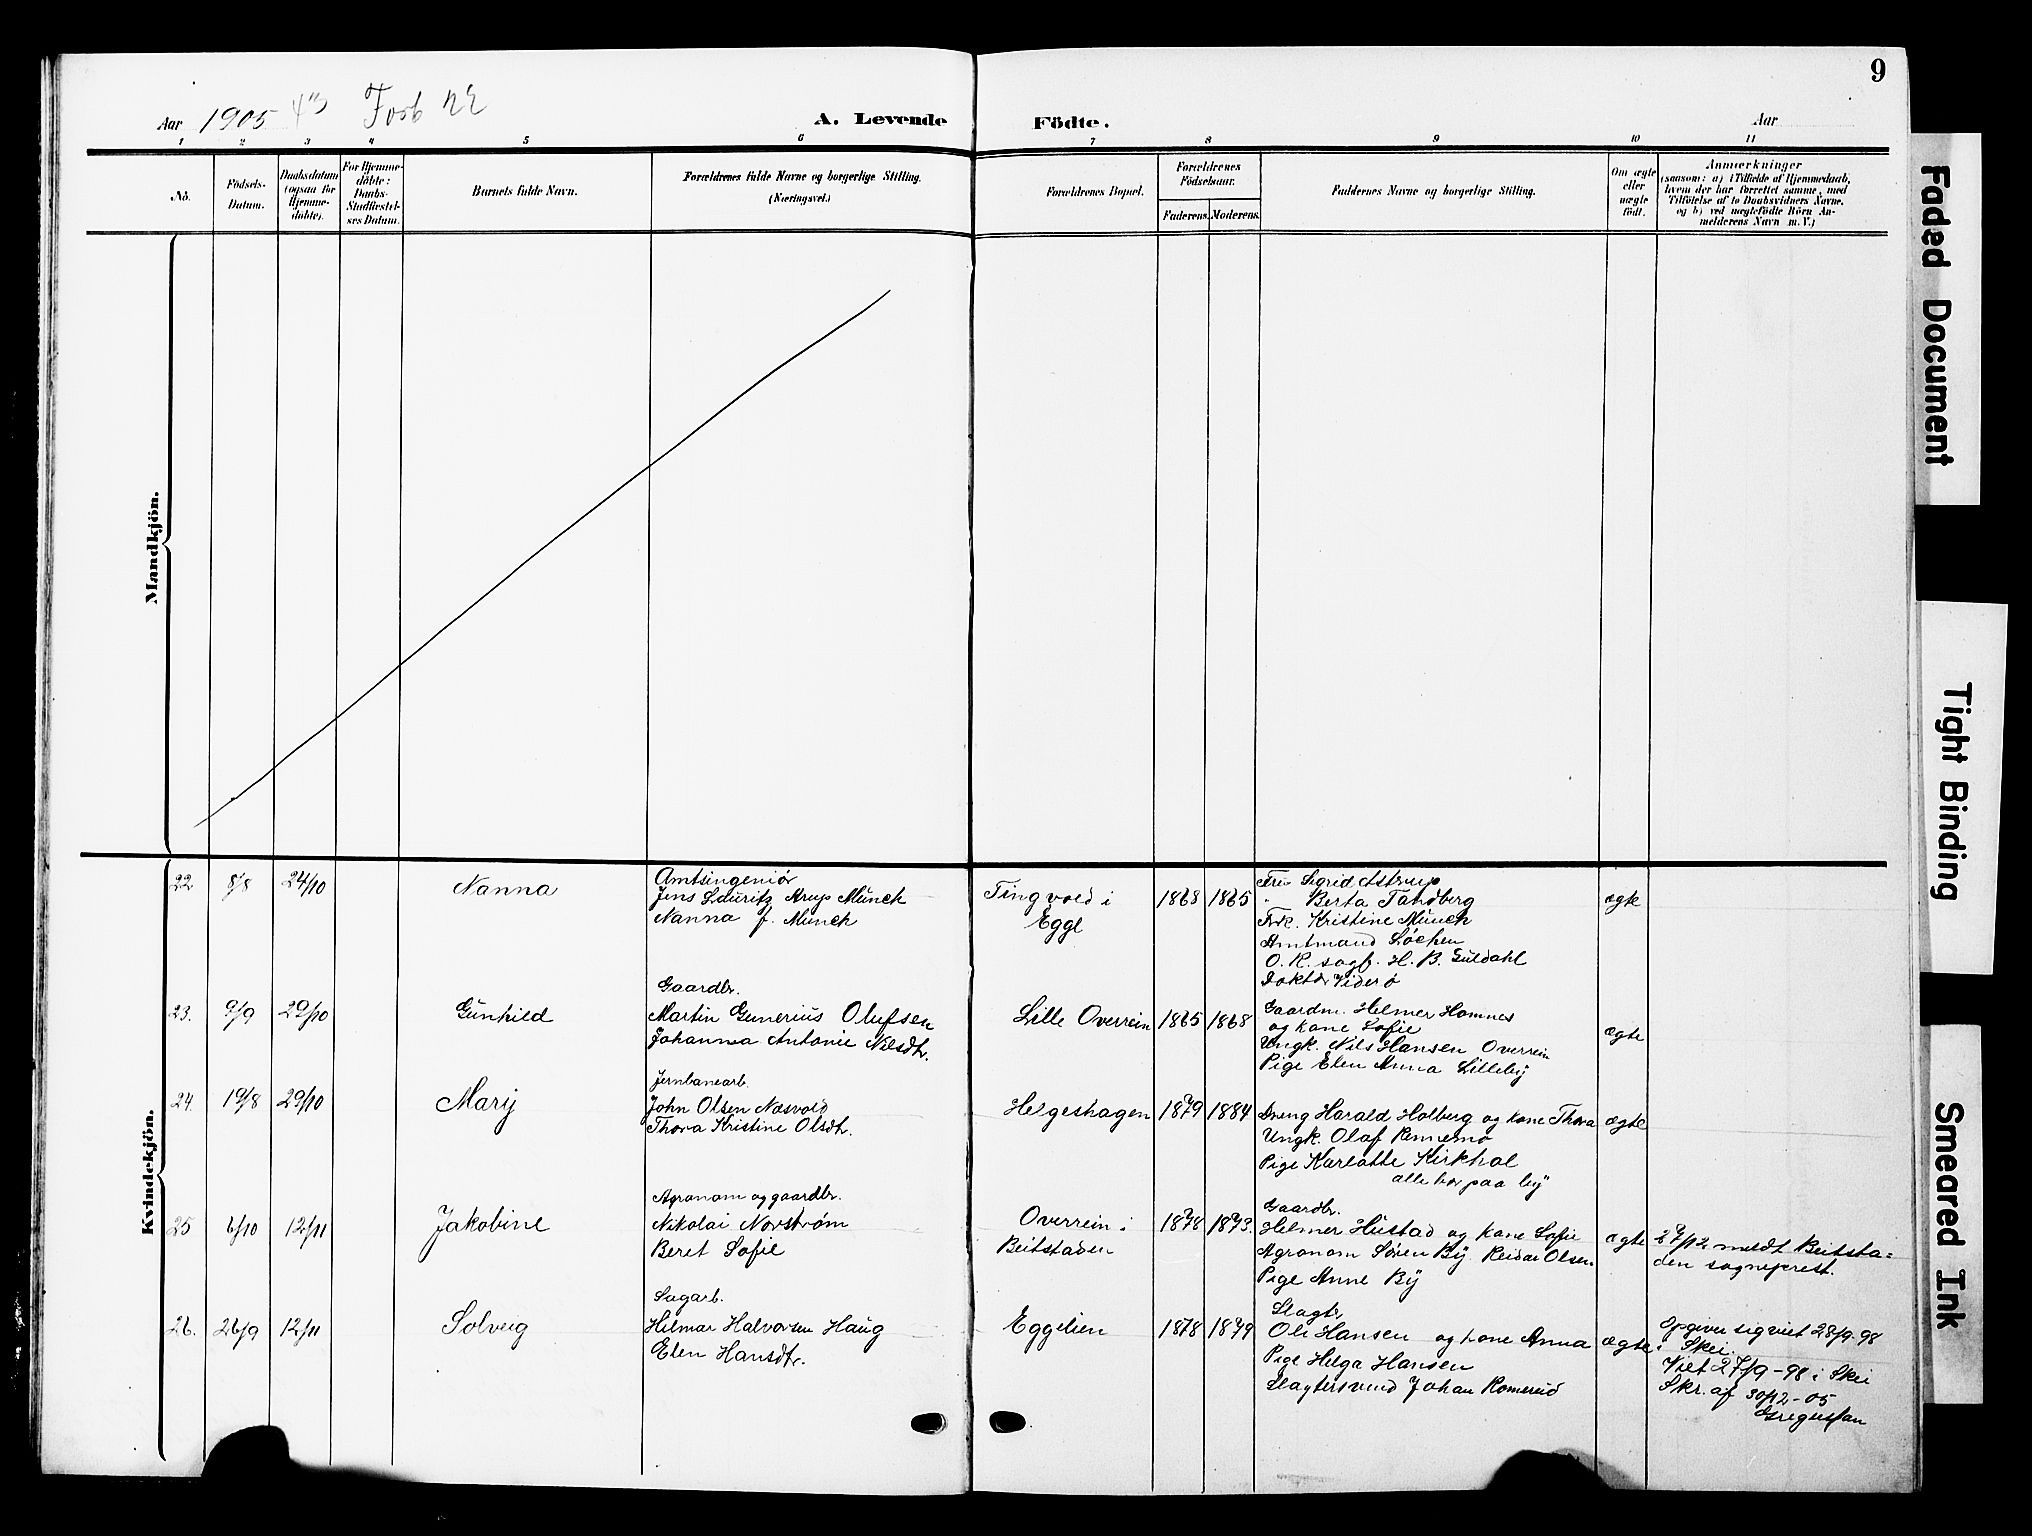 9
Aar 1905
A. Levende Födte.
Aar
1 2 3 4 5 6 7 8 9 10 11
No.
Födsels-
Datum.
Daabsdatum
(ogsaa for
Hjemme-
döbte).
For Hjemme-
döbte:
Daabs-
Stadfæstel-
ses Datum.
Barnets fulde Navn.
Forældrenes fulde Navne og borgerlige Stilling.
(Næringsvei.)
Forældrenes Bopæl.
Forældrenes
Födselsaar.
Faderens. Moderens.
Faddernes Navne og borgerlige Stilling.
Om ægte
eller
uægte
födt.
Anmærkninger
(saasom: a) i Tilfælde af Hjemmedaab,
hvem der har forrettet samme, med
Tilföielse af to Daabsvidners Navne,
og b) ved uægtefödte Börn An-
melderens Navn m. V.)
Mandkjön.
Kvindekjön.
22 8/8 24/10 Nanna
Amtsingeniør
Jens Lauritz Arup Münch
Nanna f. Münch
Tingvold i
Egge
1868 1865
Fru Sigrid Astrup
" Berta Tandberg
Frk. Kristine Münch
Amtmand Løchen
O. R. sagf. H. B. Guldahl
Doktor Viderø
ægte
23. 9/9 29/10 Gunhild
Gaardbr.
Martin Gunerius Olufsen
Johanna Antonie Nilsdtr.
Lille Overrein
1865 1868
Gaardm. Helmer Homnes
og kone Sofie
Ungk. Nils Hansen Overrein
Pige Elen Anna Lilleby
ægte
24. 19/8 29/10 Mary
Jernbanearb.
John Olsen Næsvold
Thora Kristine Olsdtr.
Helgeshagen
1879 1884
Dreng Harald Holberg og kone Thora
Ungk. Olaf Rennemo
Pige Karlotte Kirkhol
alle her paa by
ægte
25 6/10 12/11 Jakobine
Agronom og gaardbr.
Nikolai Norstrøm
Beret Sofie
Overrein i
Beitstaden
1878 1873.
Gaardbr.
Helmer Hustad og kone Sofie
Agronom Søren By Reidar Olsen
Pige Anne By
ægte
27/12 meldt Beitsta-
den sogneprest.
26. 26/9 12/11 Solveig
Sagarb.
Hilmar Halvorsen Haug
Elen Hansdtr.
Eggelien
1878 1879
Slagtr.
Ole Hansen og kone Anna
Pige Helga Hansen
Slagtersvend Johan Romerud
ægte
Opgiver sig viet 28/9-98
i Skei.
Viet 27/9-98 i Skei
Skr. af 30/12-05
Faded Document
Tight Binding
Smeared Ink